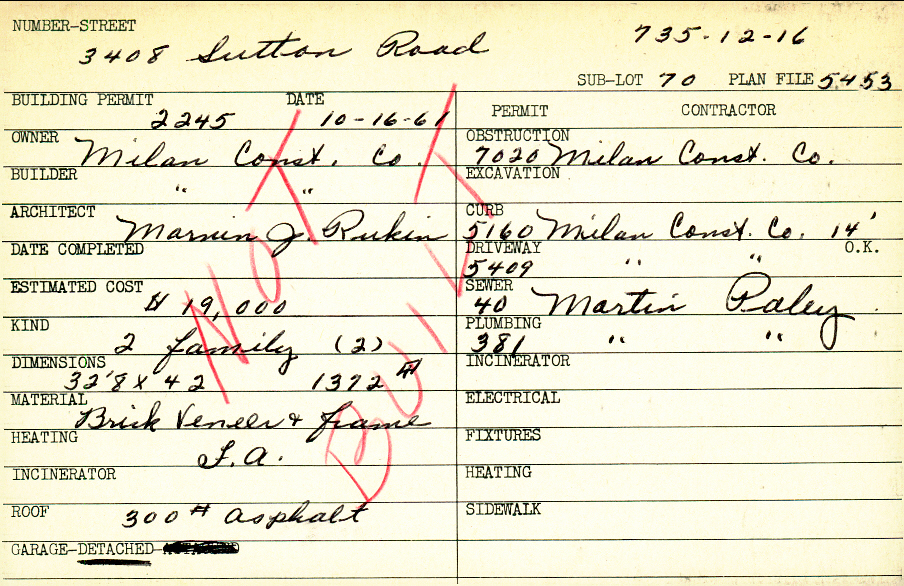 NUMBER-STREET
3408 Sutton Road
735-12-16
SUB-LOT 70 PLAN FILE 5453
BUILDING PERMIT DATE
2245 10-16-61
OWNER Milan Const. Co.
BUILDER " "
ARCHITECT Marvin J. Rukin
DATE COMPLETED
ESTIMATED COST
$ 19,000
KIND
2 family (2)
DIMENSIONS
32'8 x 42 1372 #
MATERIAL
Brick Veneer & frame
HEATING
F.A.
INCINERATOR
ROOF 300 # Asphalt
GARAGE-DETACHED
PERMIT CONTRACTOR
OBSTRUCTION
7020 Milan Const. Co.
EXCAVATION
CURB
5160 Milan Const. Co. 14'
DRIVEWAY O.K.
5409 " "
SEWER
40 Martin Paley
PLUMBING
381 " "
INCINERATOR
ELECTRICAL
FIXTURES
HEATING
SIDEWALK
NOT
BUILT